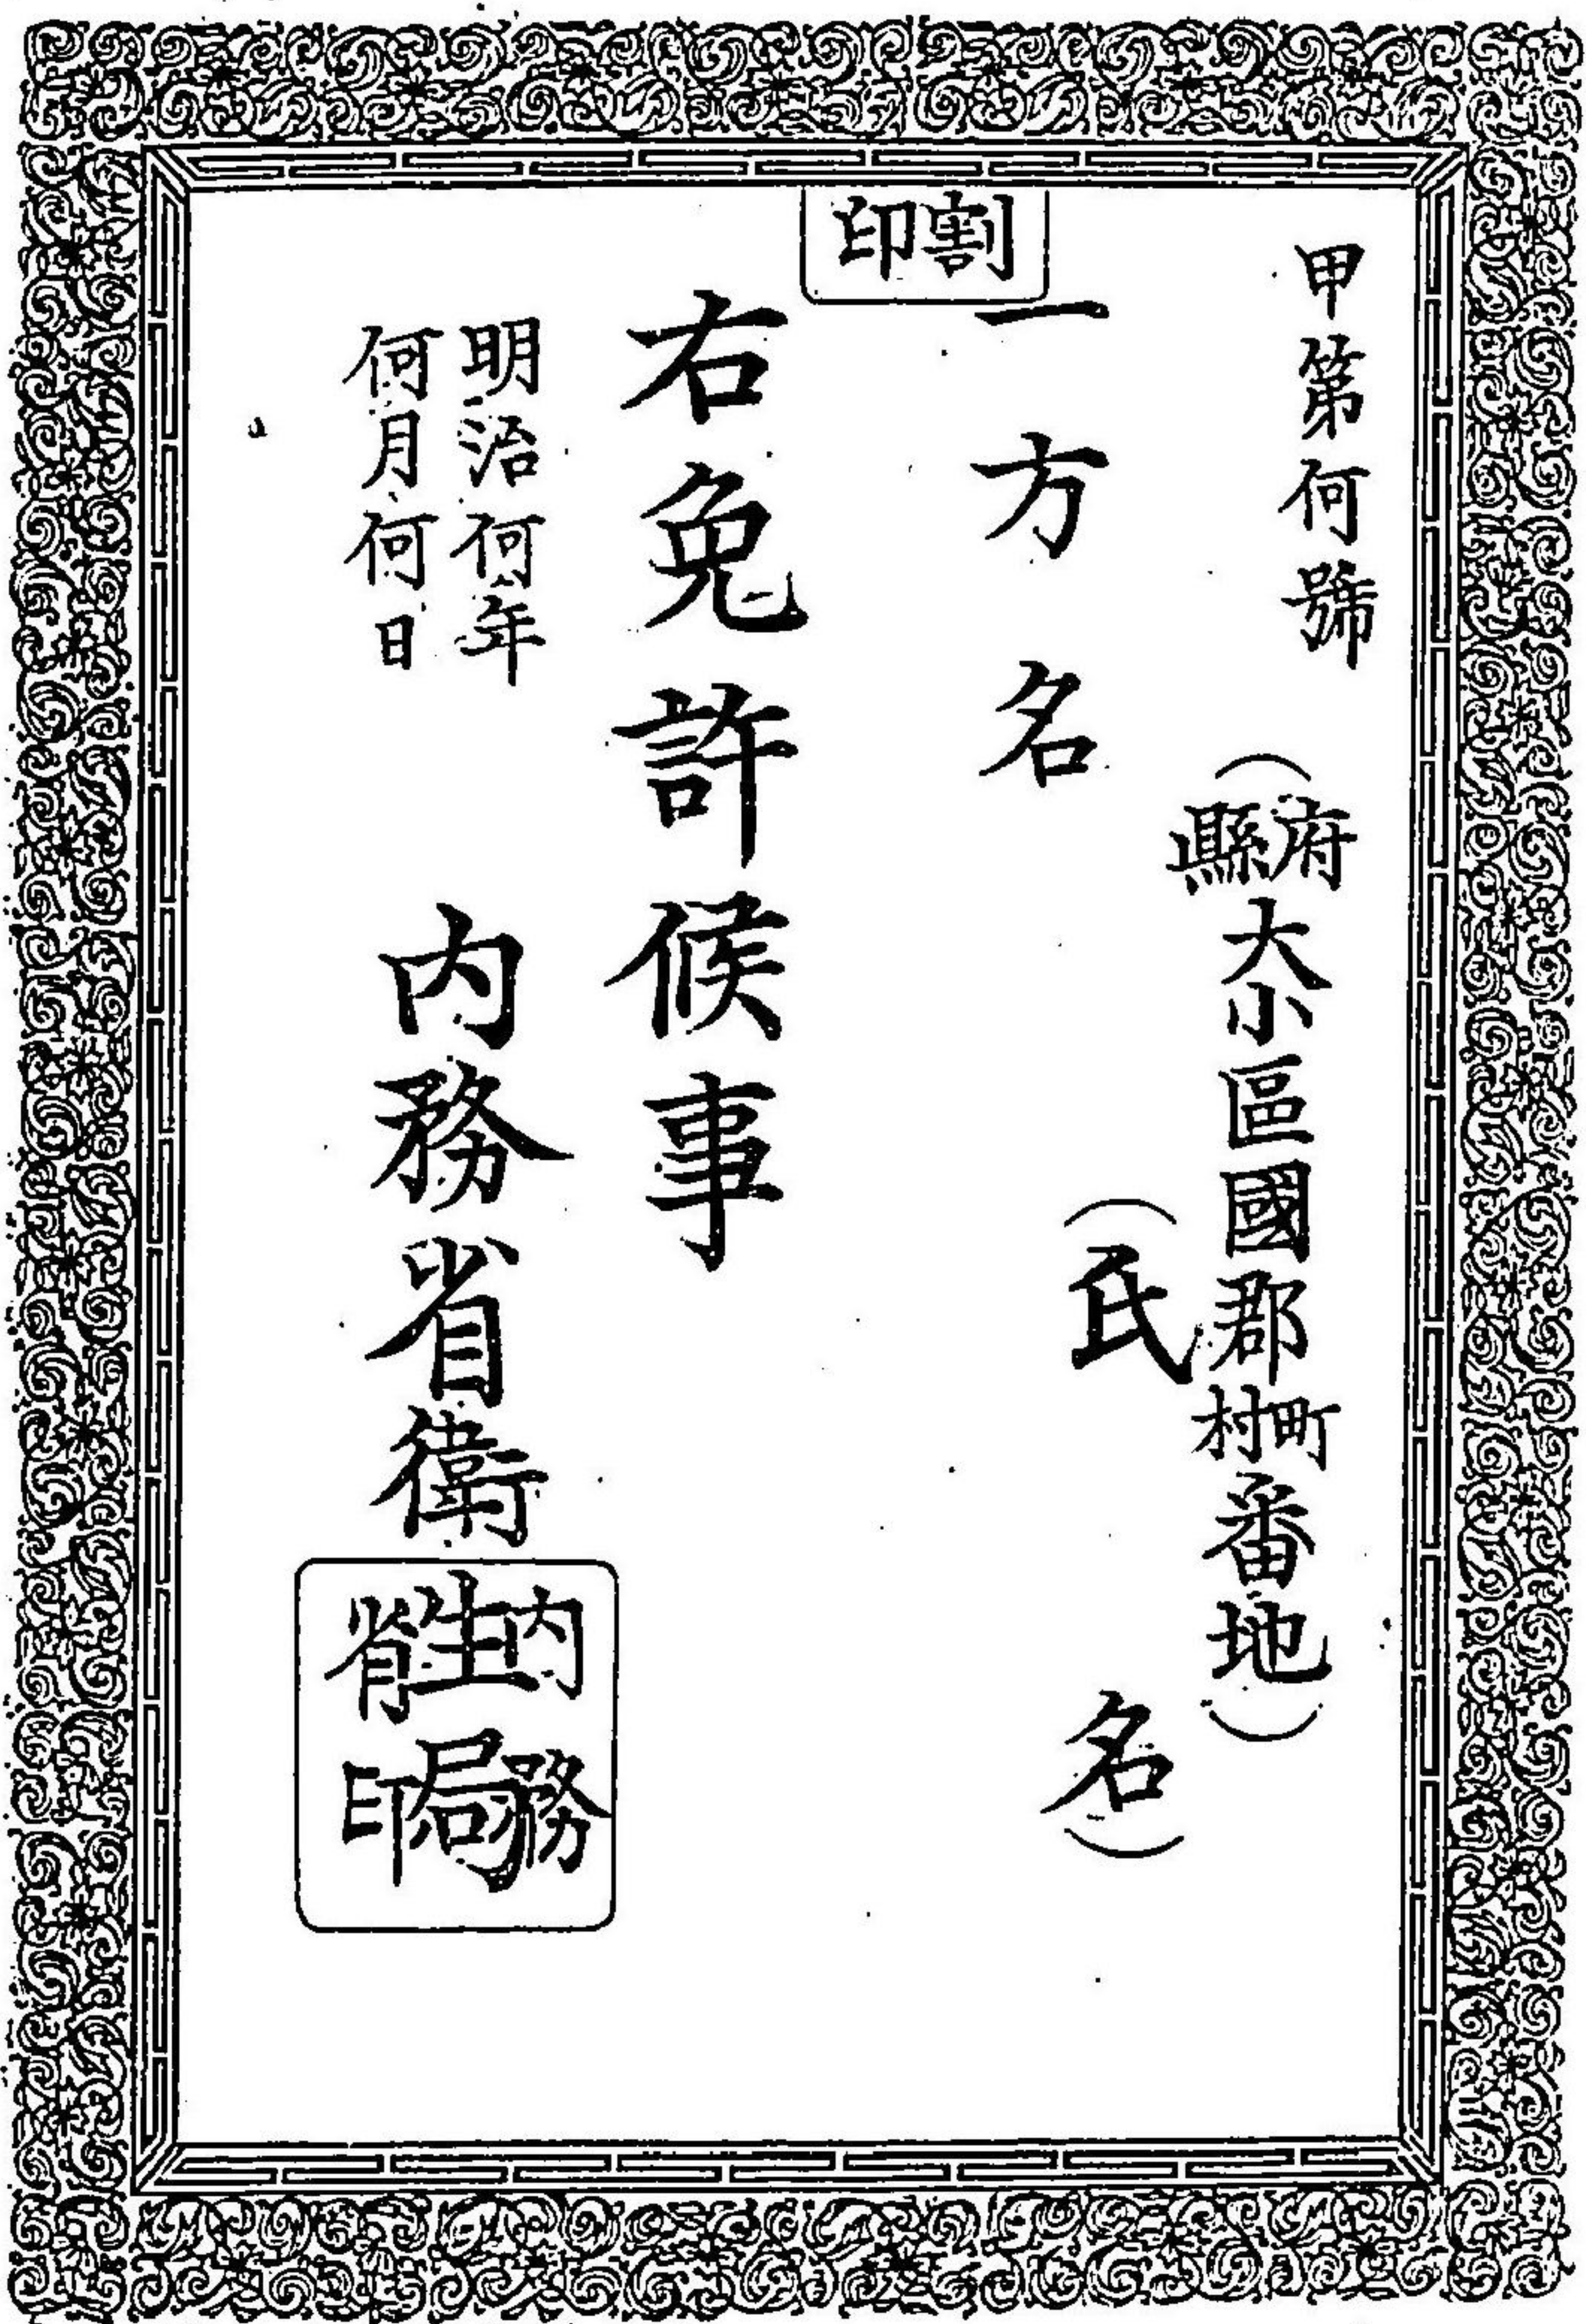 甲第何號
（府縣大小區國郡町村番地）
（氏名）
割印
一方名
右免許候事
明治何年
何月何日
内務省衛生局
内務省印